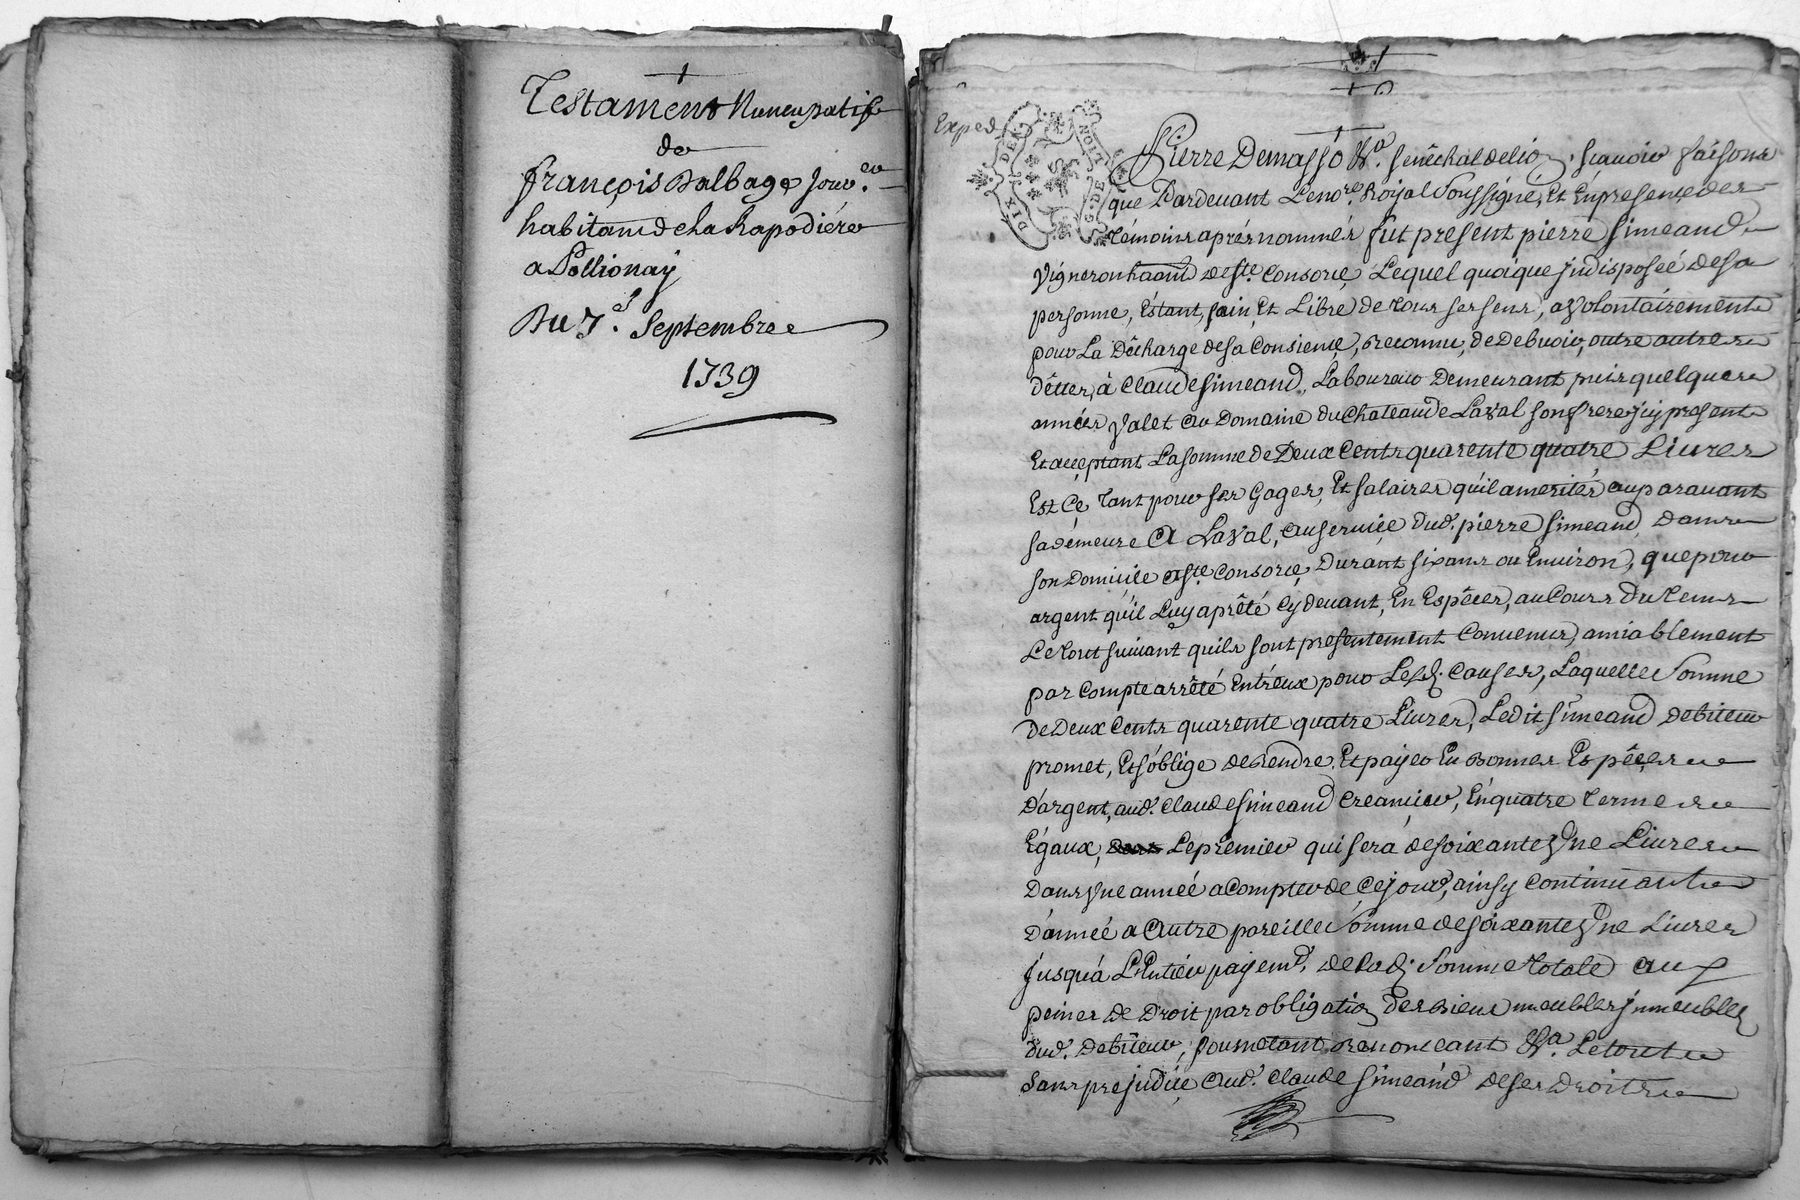 Testament Nuncupatif
de
françois Dalbage Jouv.eu
habitant de La Rapodiére
a Pollionay
Du 7.e Septembre
1739
Exped
DIX DEN
G. DE
Pierre Demasso &a. senéchal de lion, sçavoir faisons
que Pardevant Le nore. Royal Soussigné, Et En presence des
témoins aprés nommés fut present pierre Simeand
Vigneron haant de ste. Consorce, Lequel quoique jndisposéé de sa
personne, Etant, sain, Et Libre de tous ses sens, a volontairement
pour La Décharge de sa Consience, reconnu, de Debvoir, outre autres
déttes, á Claude Simeand, Laboureur Demeurant puis quelques
années Valet au Domaine du Chateau de Laval son frere jcy present
Et acceptant La somme de Deux Cents quarente quatre Livres
Est Ce tant pour ses Gages, Et Salaires qu'il a merités auparavant
sa demeure A Laval, au service dud. pierre Simeand, dans
son Domicile a ste. Consorce, Durant six ans ou Environ, que pour
argent qu'il Luy a prêté Cy devant, En Espêces, au Cours du tems
Le tout suivant qu'ils sont presentement Convenus, amiablement
par Compte arrêté Entréux pour Lesd. Causes, Laquelle Somme
De Deux Cents quarente quatre Livres, Ledit Simeand debiteur
promet, Et s'oblige de Rendre, Et payer En Bonnes Espêces
D'argent, aud. Claude Simeand Creancier, En quatre termes
Egaux, Le premier qui sera de soixante Une Livres
Dans Une année a Compter de Ce jour, ainsy Continuant
D'année a Autre pareille Somme de soixante Une Livres
Jusqu'á L'Entiér payemt. de Lad. Somme totale aux
peines de Droit par obligation des Biens meubles jmmeubles
Dud. Debiteur, soumetant Renonceant &a. Le tout
Sans prejudice Aud. Claude Simeand de ses Droits